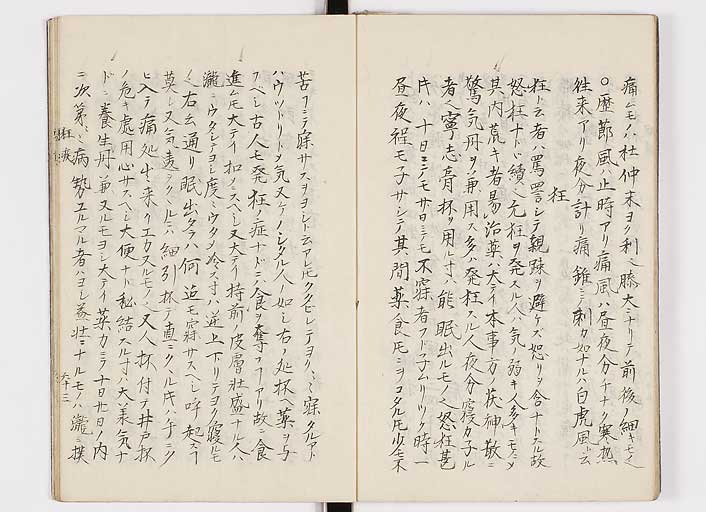 痛ムモノハ杜仲末ヨク利ス膝大ニナリテ前後ノ細キモ
○歴節風ハ止時アリ痛風ハ昼夜分チナク寒熱
往来アリ夜分計リ痛錐ニテ刺カ如ナルハ白虎風ト云
狂
狂ト云者ハ罵詈シテ親踈ヲ避ケス怒リヲ含ナトスル故
怒狂ナトヽ続ク元狂ヲ発スル人ハ気ノ弱キ人多キモノ
其内荒キ者易治薬ハ大テイ本事方ノ茯神散ニ
驚気丹ヲ兼用ス多ハ発狂スル人夜分寝カヌル
者ヘ寧志膏抔ヲ用ル寸ハ能眠出ルモノ怒狂甚
片ハ十日ニテモ廿日ニテモ不寐者フト子ムリツク時一
昼夜程モ子サシテ其間薬食トモニヲコタル少モ不
苦ヨク寐サスヲヨシト云アレトモクタビレテヨク寐タルアト
ハウツトリトメ気又ケノシタル人ノ如シ右ノ処抔ヘ薬ヲ与
フヘシ古人モ発狂ノ症ナトニハ食ヲ奪フアリ故ニ食
進ムトモ大テイ扣ヘスヘシ又大テイ持前ノ皮膚壮盛ナル人ハ
瀧ニウタレテヨシ度々ウタメ冷ス寸ハ逆上下リテヨク寝ルモ
右云通リ眠出タラハ何迄モ寐サスヘシ呼起スヿ
莫レ又気違ラクルニハ細引抔テ直ニクヽル片ハ手ニク
ヒ入テ痛処出来クエカスルモノ又人抔付テ井戸抔
ノ危キ處用心サスヘシ大便ナト秘結スル寸ハ大承気ナ
ト養生丹兼又ルモヨシ大テイ薬カニテ十日廿日ノ内
ニ次第々々ニ病勢ユルマル者ハヨシ益壮ニナルモノハ瀧ニ
狂
六十三